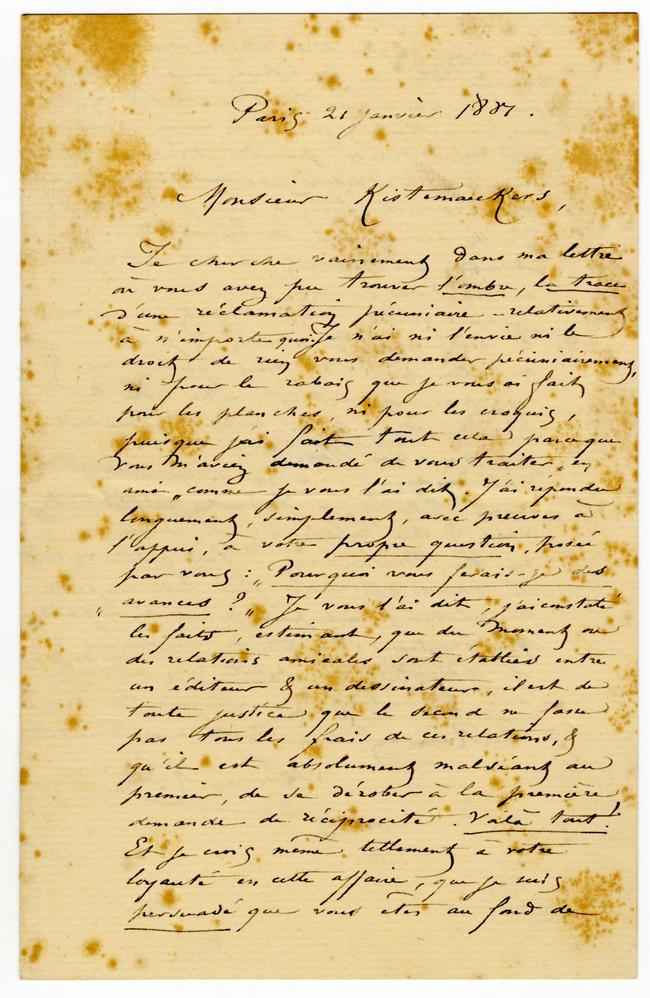 Paris 21 janvier 1887.
Monsieur Kistemaeckers,
Je cherche vainement dans ma lettre
où vous avez pu trouver l'ombre, la trace
d'une réclamation pécuniaire – relativement
à n'importe quoi. Je n'ai ni l'envie ni le
droit de rien vous demander pécuniairement,
ni pour le rabais que je vous ai fait
pour les planches, ni pour les croquis,
puisque j'ai fait tout cela parceque
vous m'aviez demandé de vous traiter „en
ami„ comme je vous l'ai dit. J'ai répondu
longuement, simplement, avec preuves à
l'appui, à votre propre question, posée
par vous : „Pourquoi vous ferais-je des
„avances ?„ Je vous l'ai dit, j'ai constaté
les faits, estimant, que du moment où
des relations amicales sont établies entre
un éditeur & un dessinateur, il est de
toute justice que le second ne fasse
pas tous les frais de ces relations, &
qu'il est absolument malséant au
premier, de se dérober à la première
demande de réciprocité. Voilà tout!
Et je crois même tellement à votre
loyauté en cette affaire, que je suis
persuadé que vous êtes au fond de